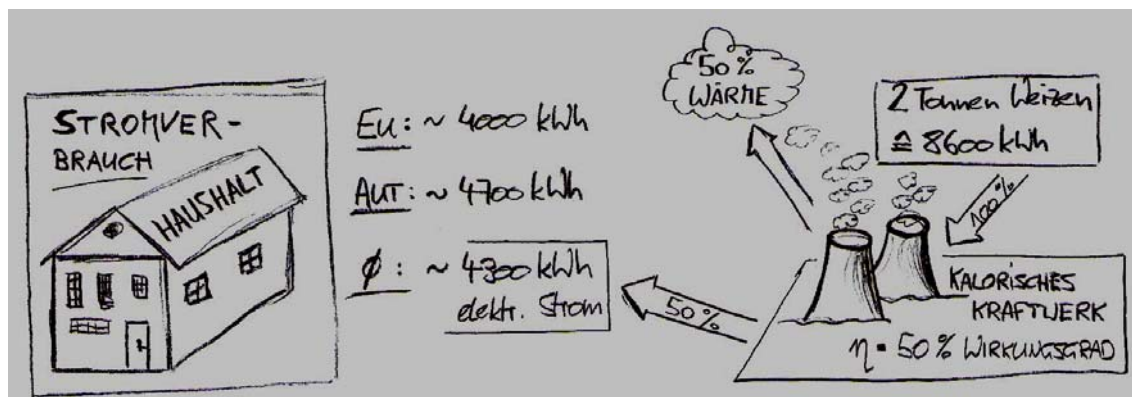 STROMVER-
BRAUCH
HAUSHALT
EU: ~ 4000 kWh
AUT: ~ 4700 kWh
Ø: ~ 4300 kWh
elektr. Strom
50%
50%
WÄRME
2 Tonnen Weizen
≙ 8600 kWh
100%
KALORISCHES
KRAFTWERK
η = 50% WIRKUNGSGRAD